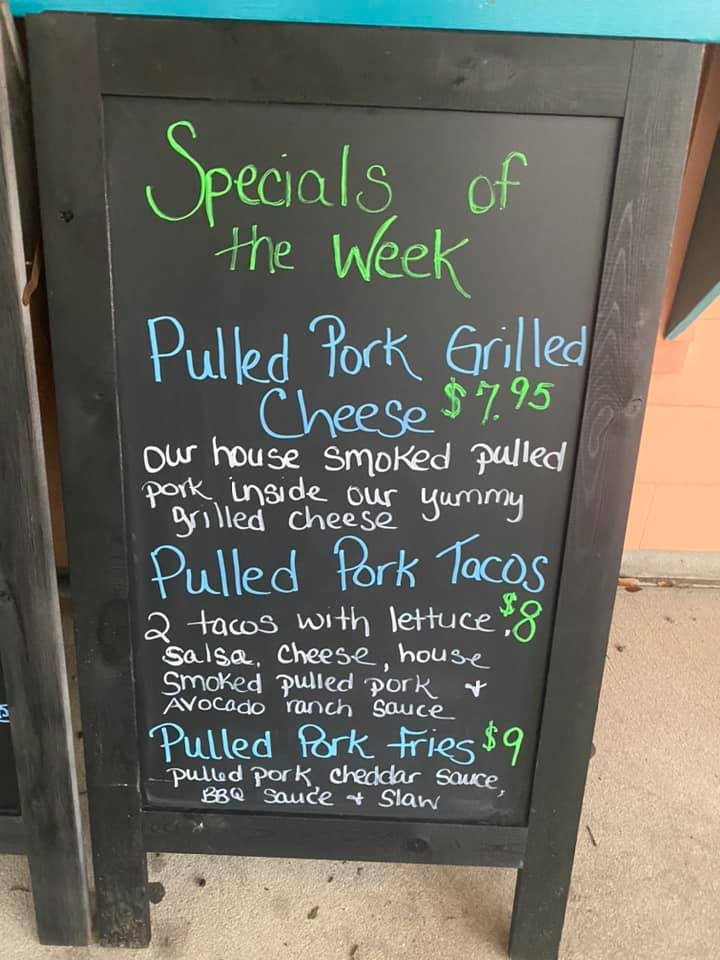 Specials of
the Week
Pulled Pork Grilled
Cheese $7.95
our house smoked pulled
pork inside our yummy
grilled cheese
Pulled Pork Tacos
2 tacos with lettuce, $8
salsa, cheese, house
smoked pulled pork +
Avocado ranch sauce
Pulled Pork fries $9
pulled pork cheddar sauce,
BBQ sauce + slaw